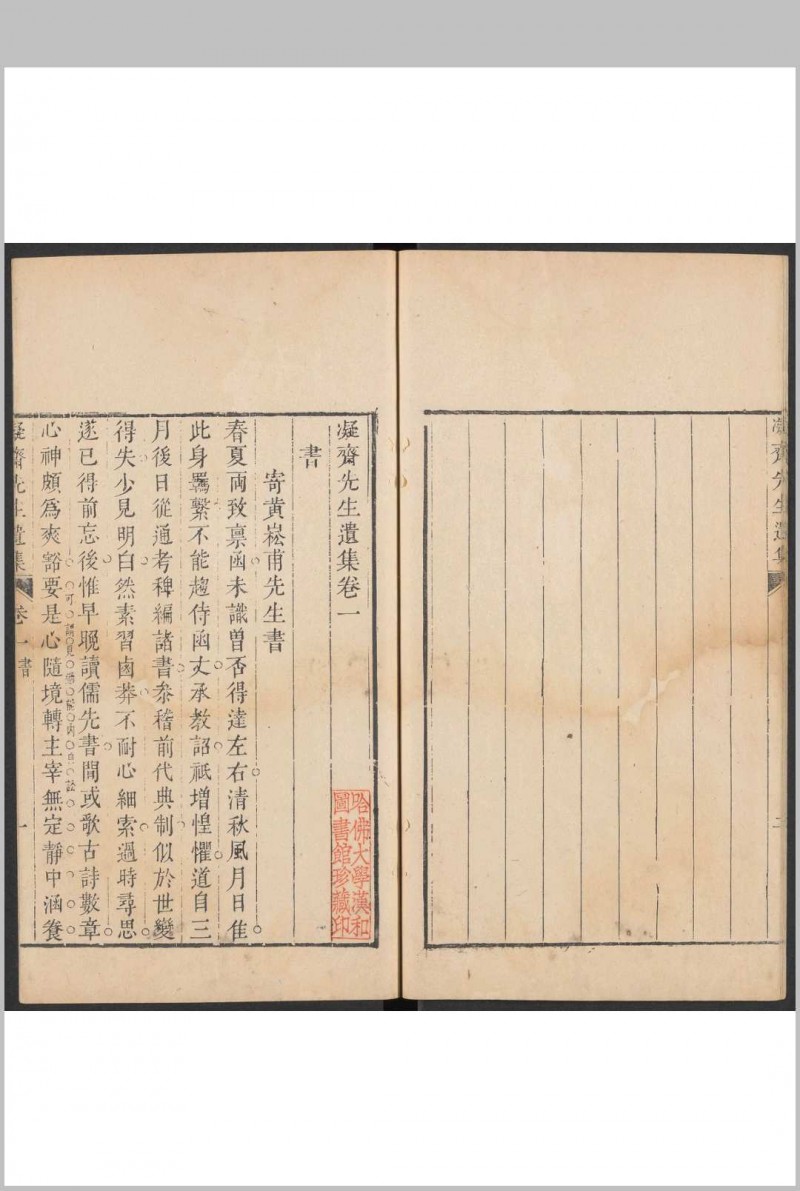 齋先生遺集
二
凝齋先生遺集卷一
哈佛大學漢和
圖書館珍藏印
書
寄黃崧甫先生書
春夏兩致稟函未識曾否得達左右清秋風月日佳
此身羈繫不能趨侍函丈承教詔祇增惶懼道自三
月後日從通考稗編諸書叅稽前代典制似於世變
得失少見明白然素習鹵莽不耐心細索過時尋思
遂已得前忘後惟早晚讀儒先書閒或歌古詩數章
心神頗爲爽豁要是心隨境轉主宰無定靜中涵養
凝齋先生遺集 卷一書 一